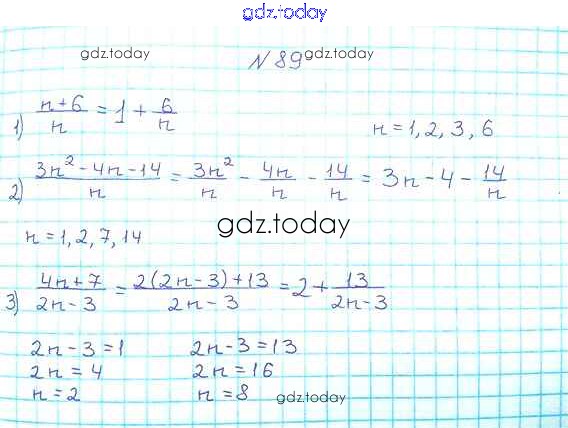 gdz.today
gdz.today № 89 gdz.today
1) (n+6)/n = 1 + 6/n n = 1, 2, 3, 6
2) (3n² - 4n - 14)/n = 3n²/n - 4n/n - 14/n = 3n - 4 - 14/n
n = 1, 2, 7, 14
gdz.today
3) (4n+7)/(2n-3) = (2(2n-3)+13)/(2n-3) = 2 + 13/(2n-3)
2n - 3 = 1 2n - 3 = 13
2n = 4 2n = 16
n = 2 n = 8
gdz.today gdz.today